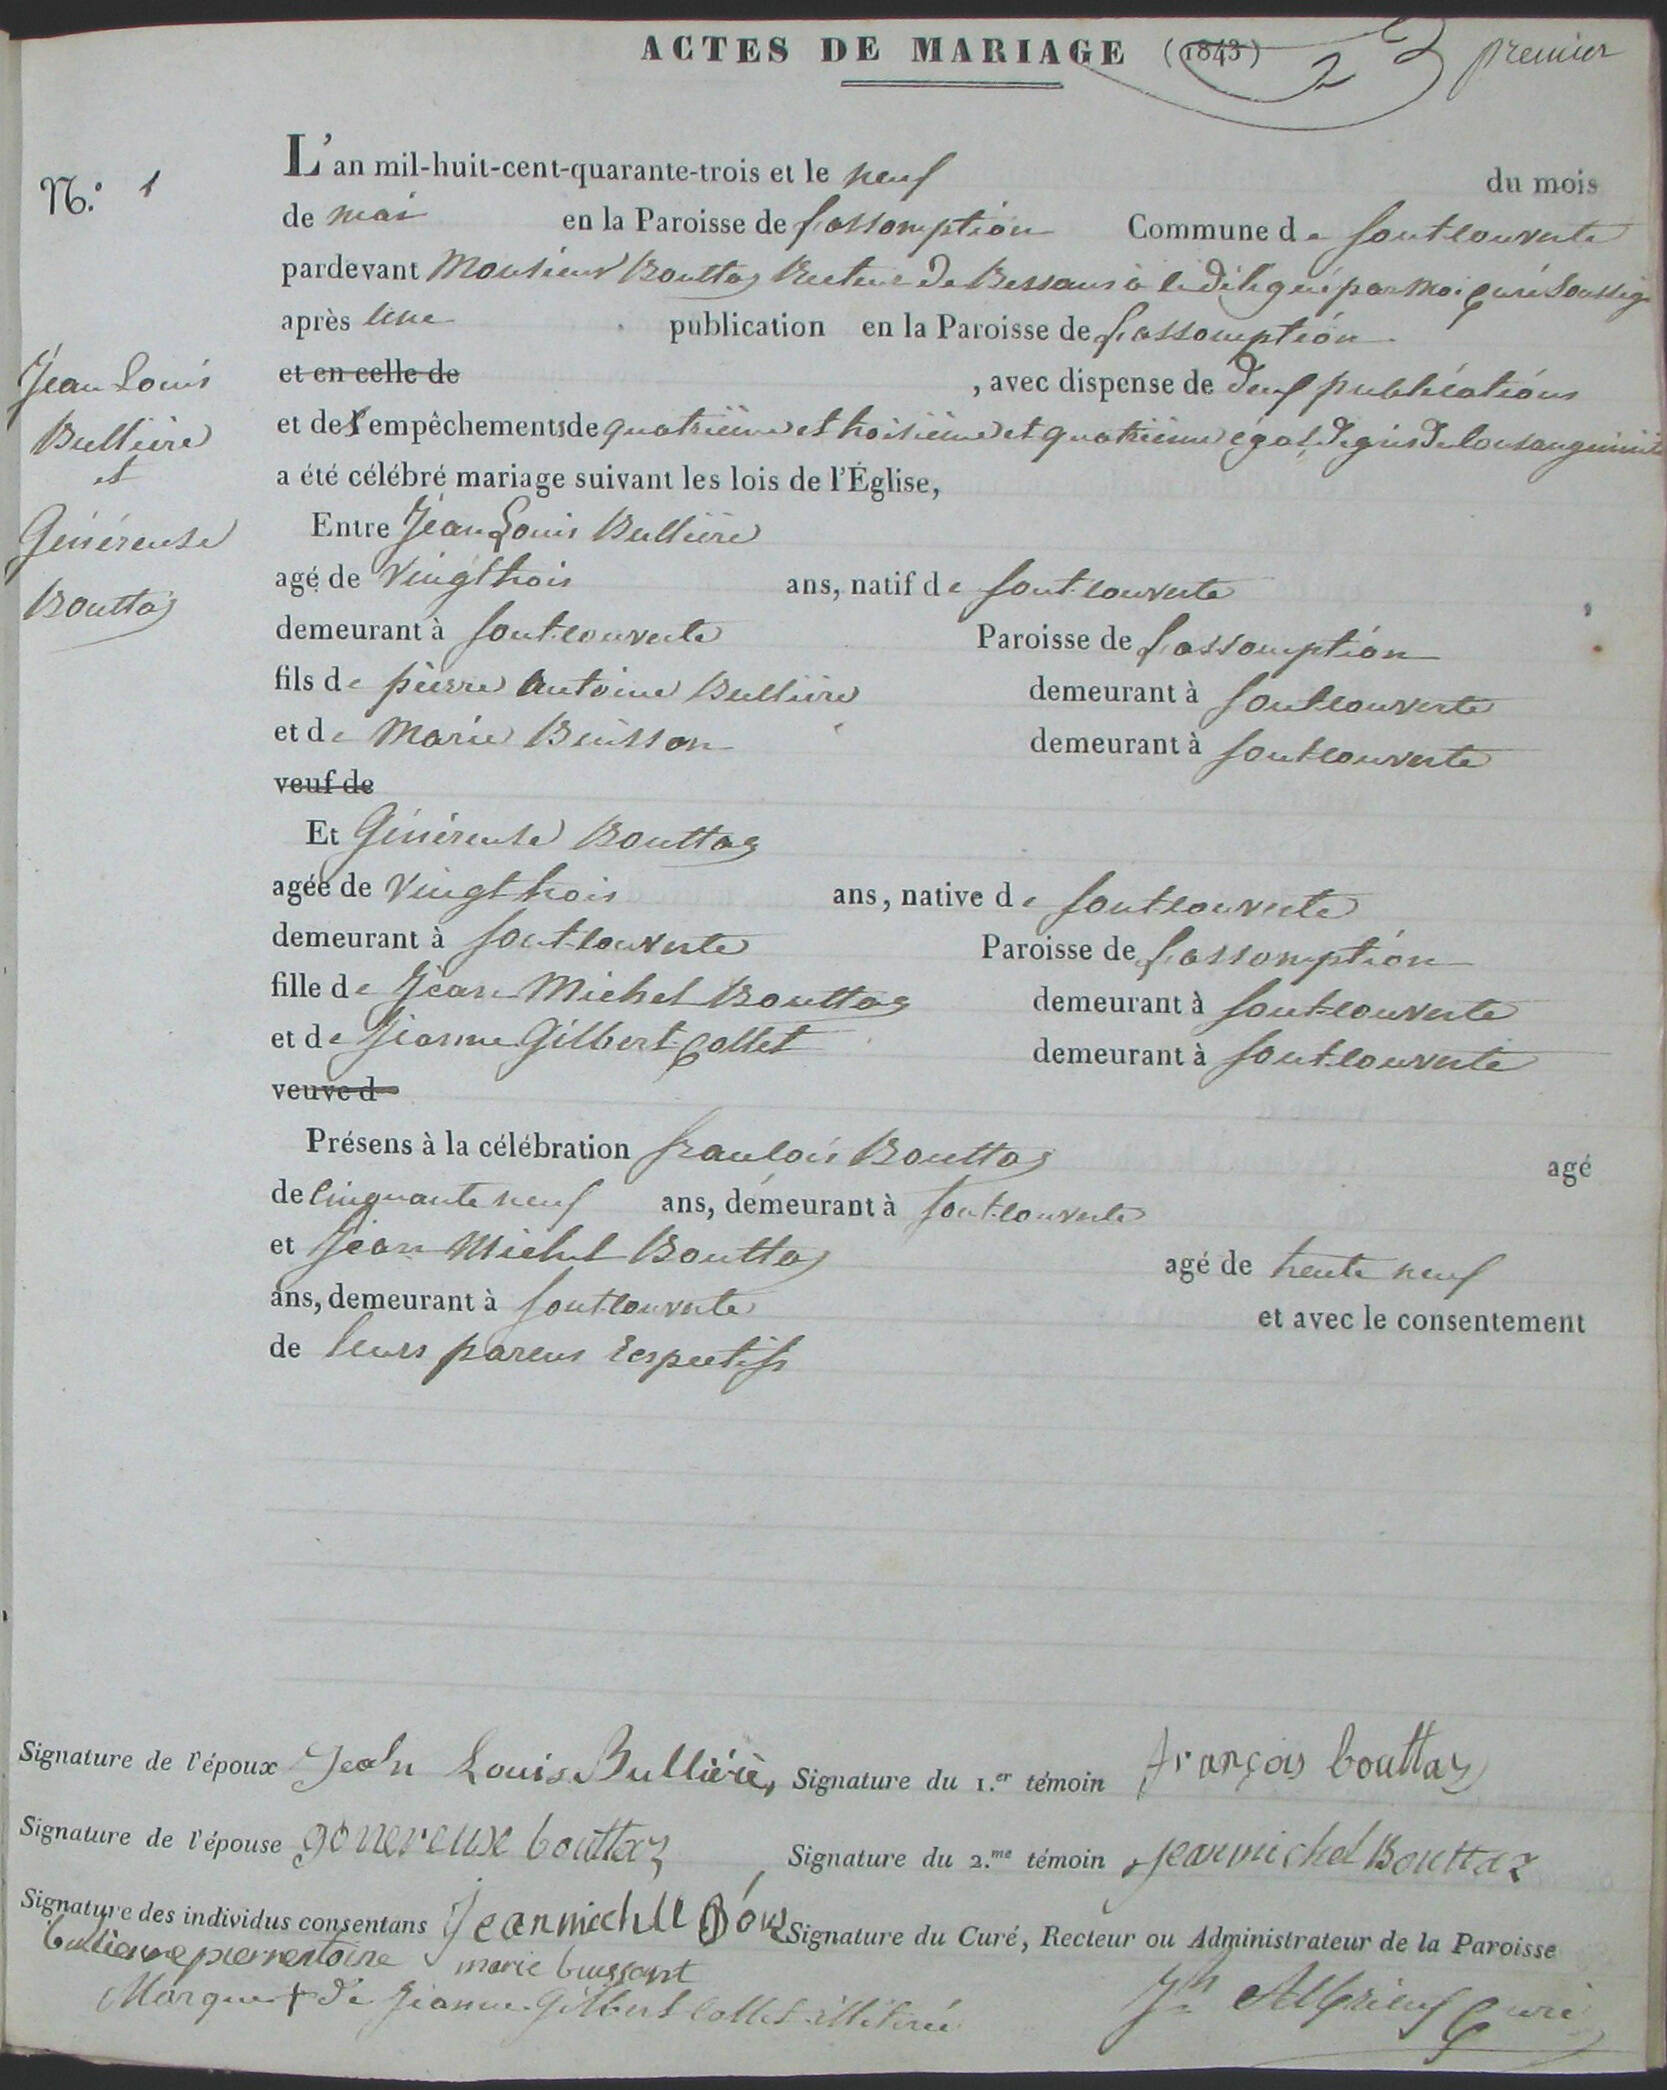 ACTES DE MARIAGE (1843) premier
N.º 1
L'an mil-huit-cent-quarante-trois et le neuf du mois
de mai en la Paroisse de l'assomption Commune de sontcouverte
pardevant Monsieur Bouttaz Recteur de Bessans à ce délégué par moi curé soussig
après une publication en la Paroisse de l'assomption
et en celle de , avec dispense de deux publications
et des empêchements de quatrième et troisième et quatrième égal degrés de consanguinité
a été célébré mariage suivant les lois de l'Église,
Jean Louis
Bullière
et
Généreuse
Bouttaz
Entre Jean Louis Bullière
agé de vingt trois ans, natif de sontcouverte
demeurant à sontcouverte Paroisse de l'assomption
fils de pierre Antoine Bullière demeurant à sontcouverte
et de Marie Buisson demeurant à sontcouverte
veuf de
Et Généreuse Bouttaz
agée de vingt trois ans, native de sontcouverte
demeurant à sontcouverte Paroisse de l'assomption
fille de Jean Michel Bouttaz demeurant à sontcouverte
et de Jeanne Gilbert-Collet demeurant à sontcouverte
veuve d
Présens à la célébration francois Bouttaz agé
de cinquante neuf ans, demeurant à sontcouverte
et Jean Michel Bouttaz agé de trente neuf
ans, demeurant à sontcouverte et avec le consentement
de leurs parens respectifs
Signature de l'époux Jean Louis Bullière Signature du 1.er témoin françois bouttaz
Signature de l'épouse genereuse bouttaz Signature du 2.me témoin jean michel Bouttaz
Signature des individus consentans Jean michel Bou Signature du Curé, Recteur ou Administrateur de la Paroisse
marie buissont
Marque + de Jeanne Gilbert Collet illitérée Jh Albrieux Curé